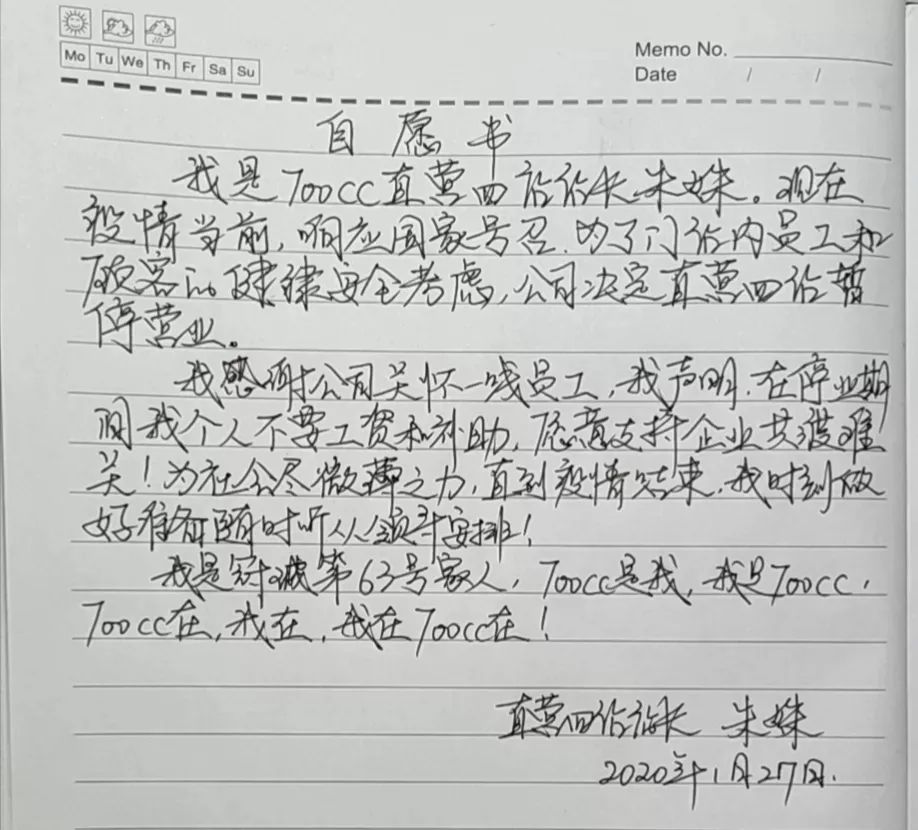 Mo Tu We Th Fr Sa Su
Memo No.
Date / /
自愿书
我是700cc直营四店店长朱姝。现在
疫情当前,响应国家号召,为了门店内员工和
顾客的健康安全考虑,公司决定直营四店暂
停营业。
我感谢公司关怀一线员工,我声明,在停业期
间我个人不要工资和补助,愿意支持企业共渡难
关!为社会尽微薄之力,直到疫情结束,我时刻做
好准备随时听从领导安排!
我是第63号家人,700cc是我,我是700cc,
700cc在,我在,我在700cc在!
直营四店店长 朱姝
2020年1月27日.